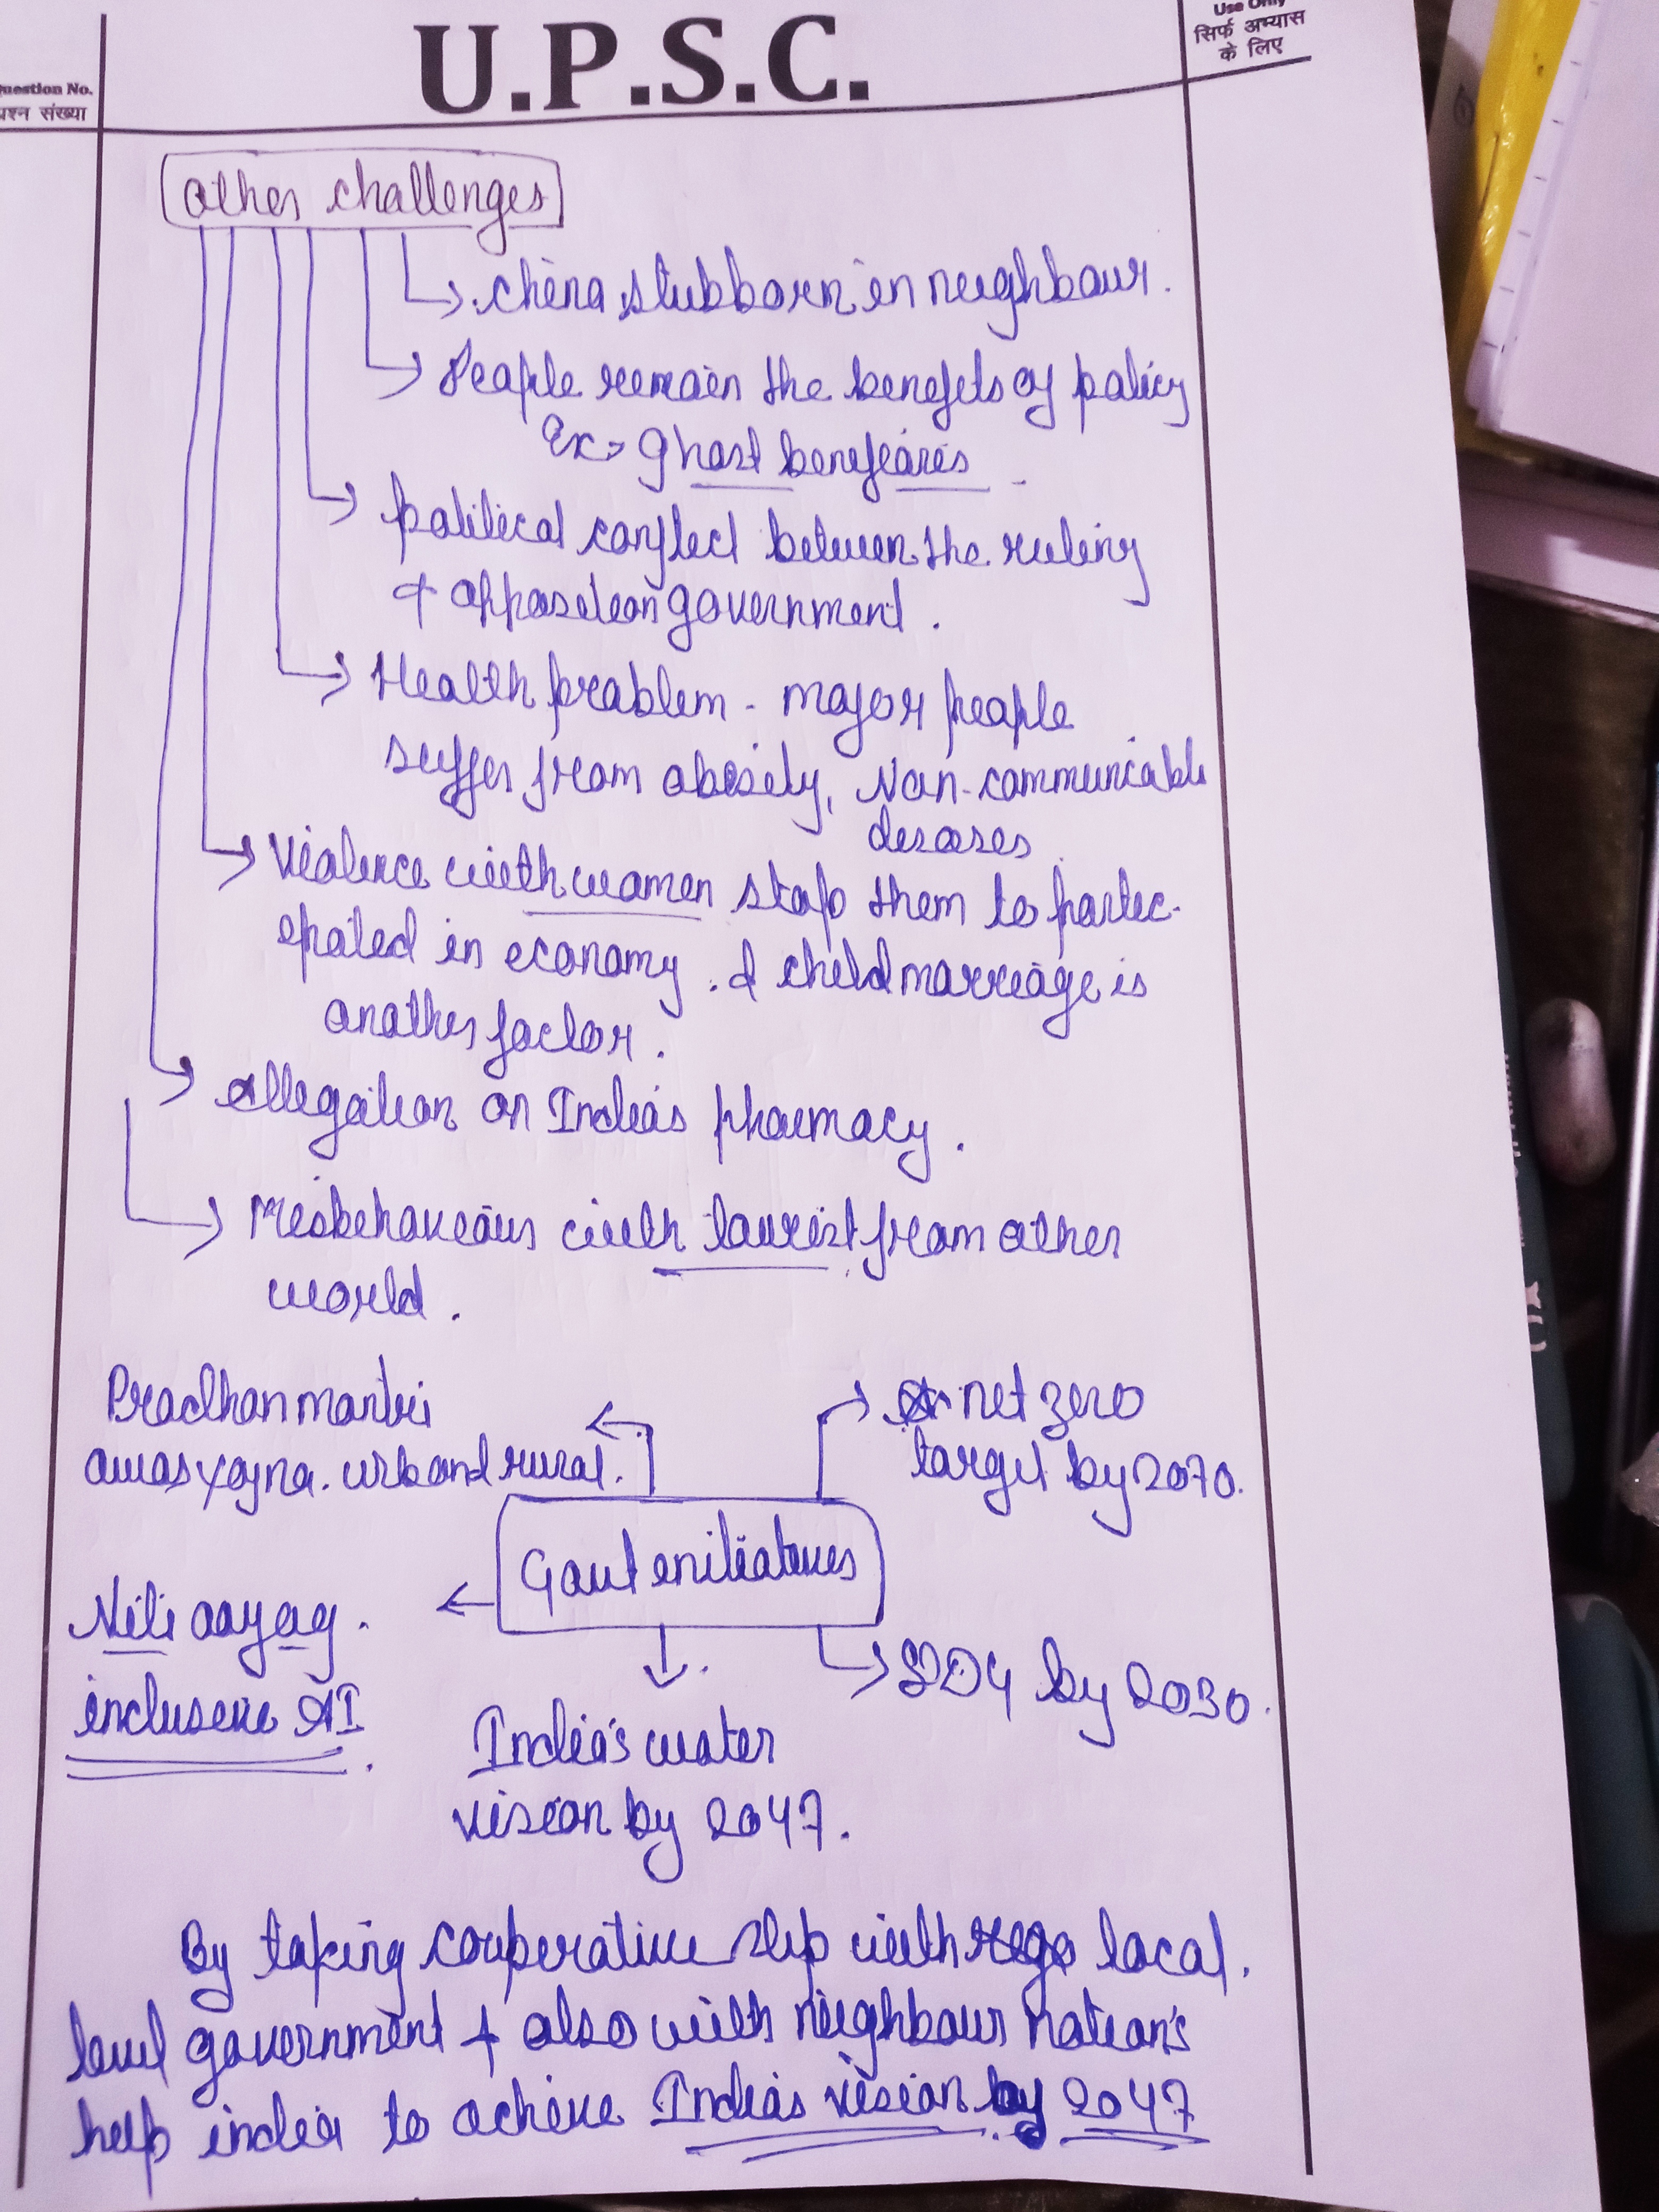 Use Only
सिर्फ अभ्यास
के लिए
U.P.S.C.
Question No.
प्रश्न संख्या
Other challenges
China stubborn in neighbour.
People remain the benefits of policy
Ex> Ghost benefiaries
political conflict between the ruling
& opposition government.
Health problem - major people
suffer from obesity, Non-communicable
diseases
Violence with women stop them to partic-
ipated in economy. & child marriage is
another factor.
Allegation on India's pharmacy.
Misbehaveious with tourist from other
world.
Pradhan mantri
awas yojna. urban and rural.
net zero
target by 2070.
Govt initiatives
Niti aayog.
inclusive AI
SDG by 2030.
India's water
vision by 2047.
By taking cooperative step with local.
level government & also with neighbour nation's
help india to achieve India's vision by 2047